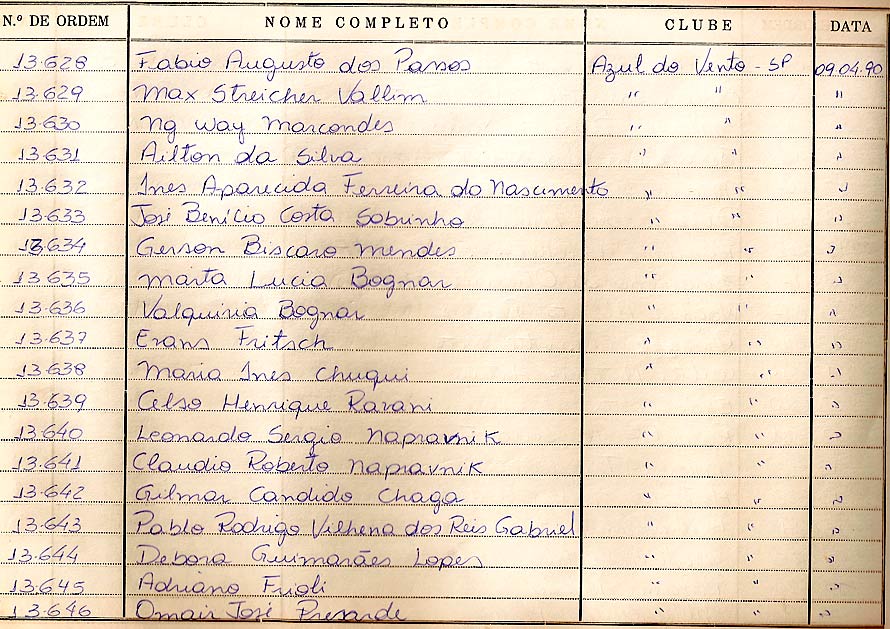 N.º DE ORDEM NOME COMPLETO CLUBE DATA
13.628 Fabio Augusto dos Passos Azul do Vento - SP 09.04.90
13.629 Max Streicher Vallim " " "
13.630 Ng Way Marcondes " " "
13.631 Ailton da Silva " " "
13.632 Ines Aparecida Ferreira do Nascimento " " "
13.633 José Benício Costa Sobrinho " " "
13.634 Gerson Biscaro Mendes " " "
13.635 Marta Lucia Bognar " " "
13.636 Valquiria Bognar " " "
13.637 Evans Fritsch " " "
13.638 Maria Ines Chuqui " " "
13.639 Celso Henrique Ravani " " "
13.640 Leonardo Sergio Napravnik " " "
13.641 Claudio Roberto Napravnik " " "
13.642 Gilmar Candido Chaga " " "
13.643 Pablo Rodrigo Vilhena dos Reis Gabriel " " "
13.644 Debora Guimarães Lopes " " "
13.645 Adriano Frioli " " "
13.646 Omair José " " "